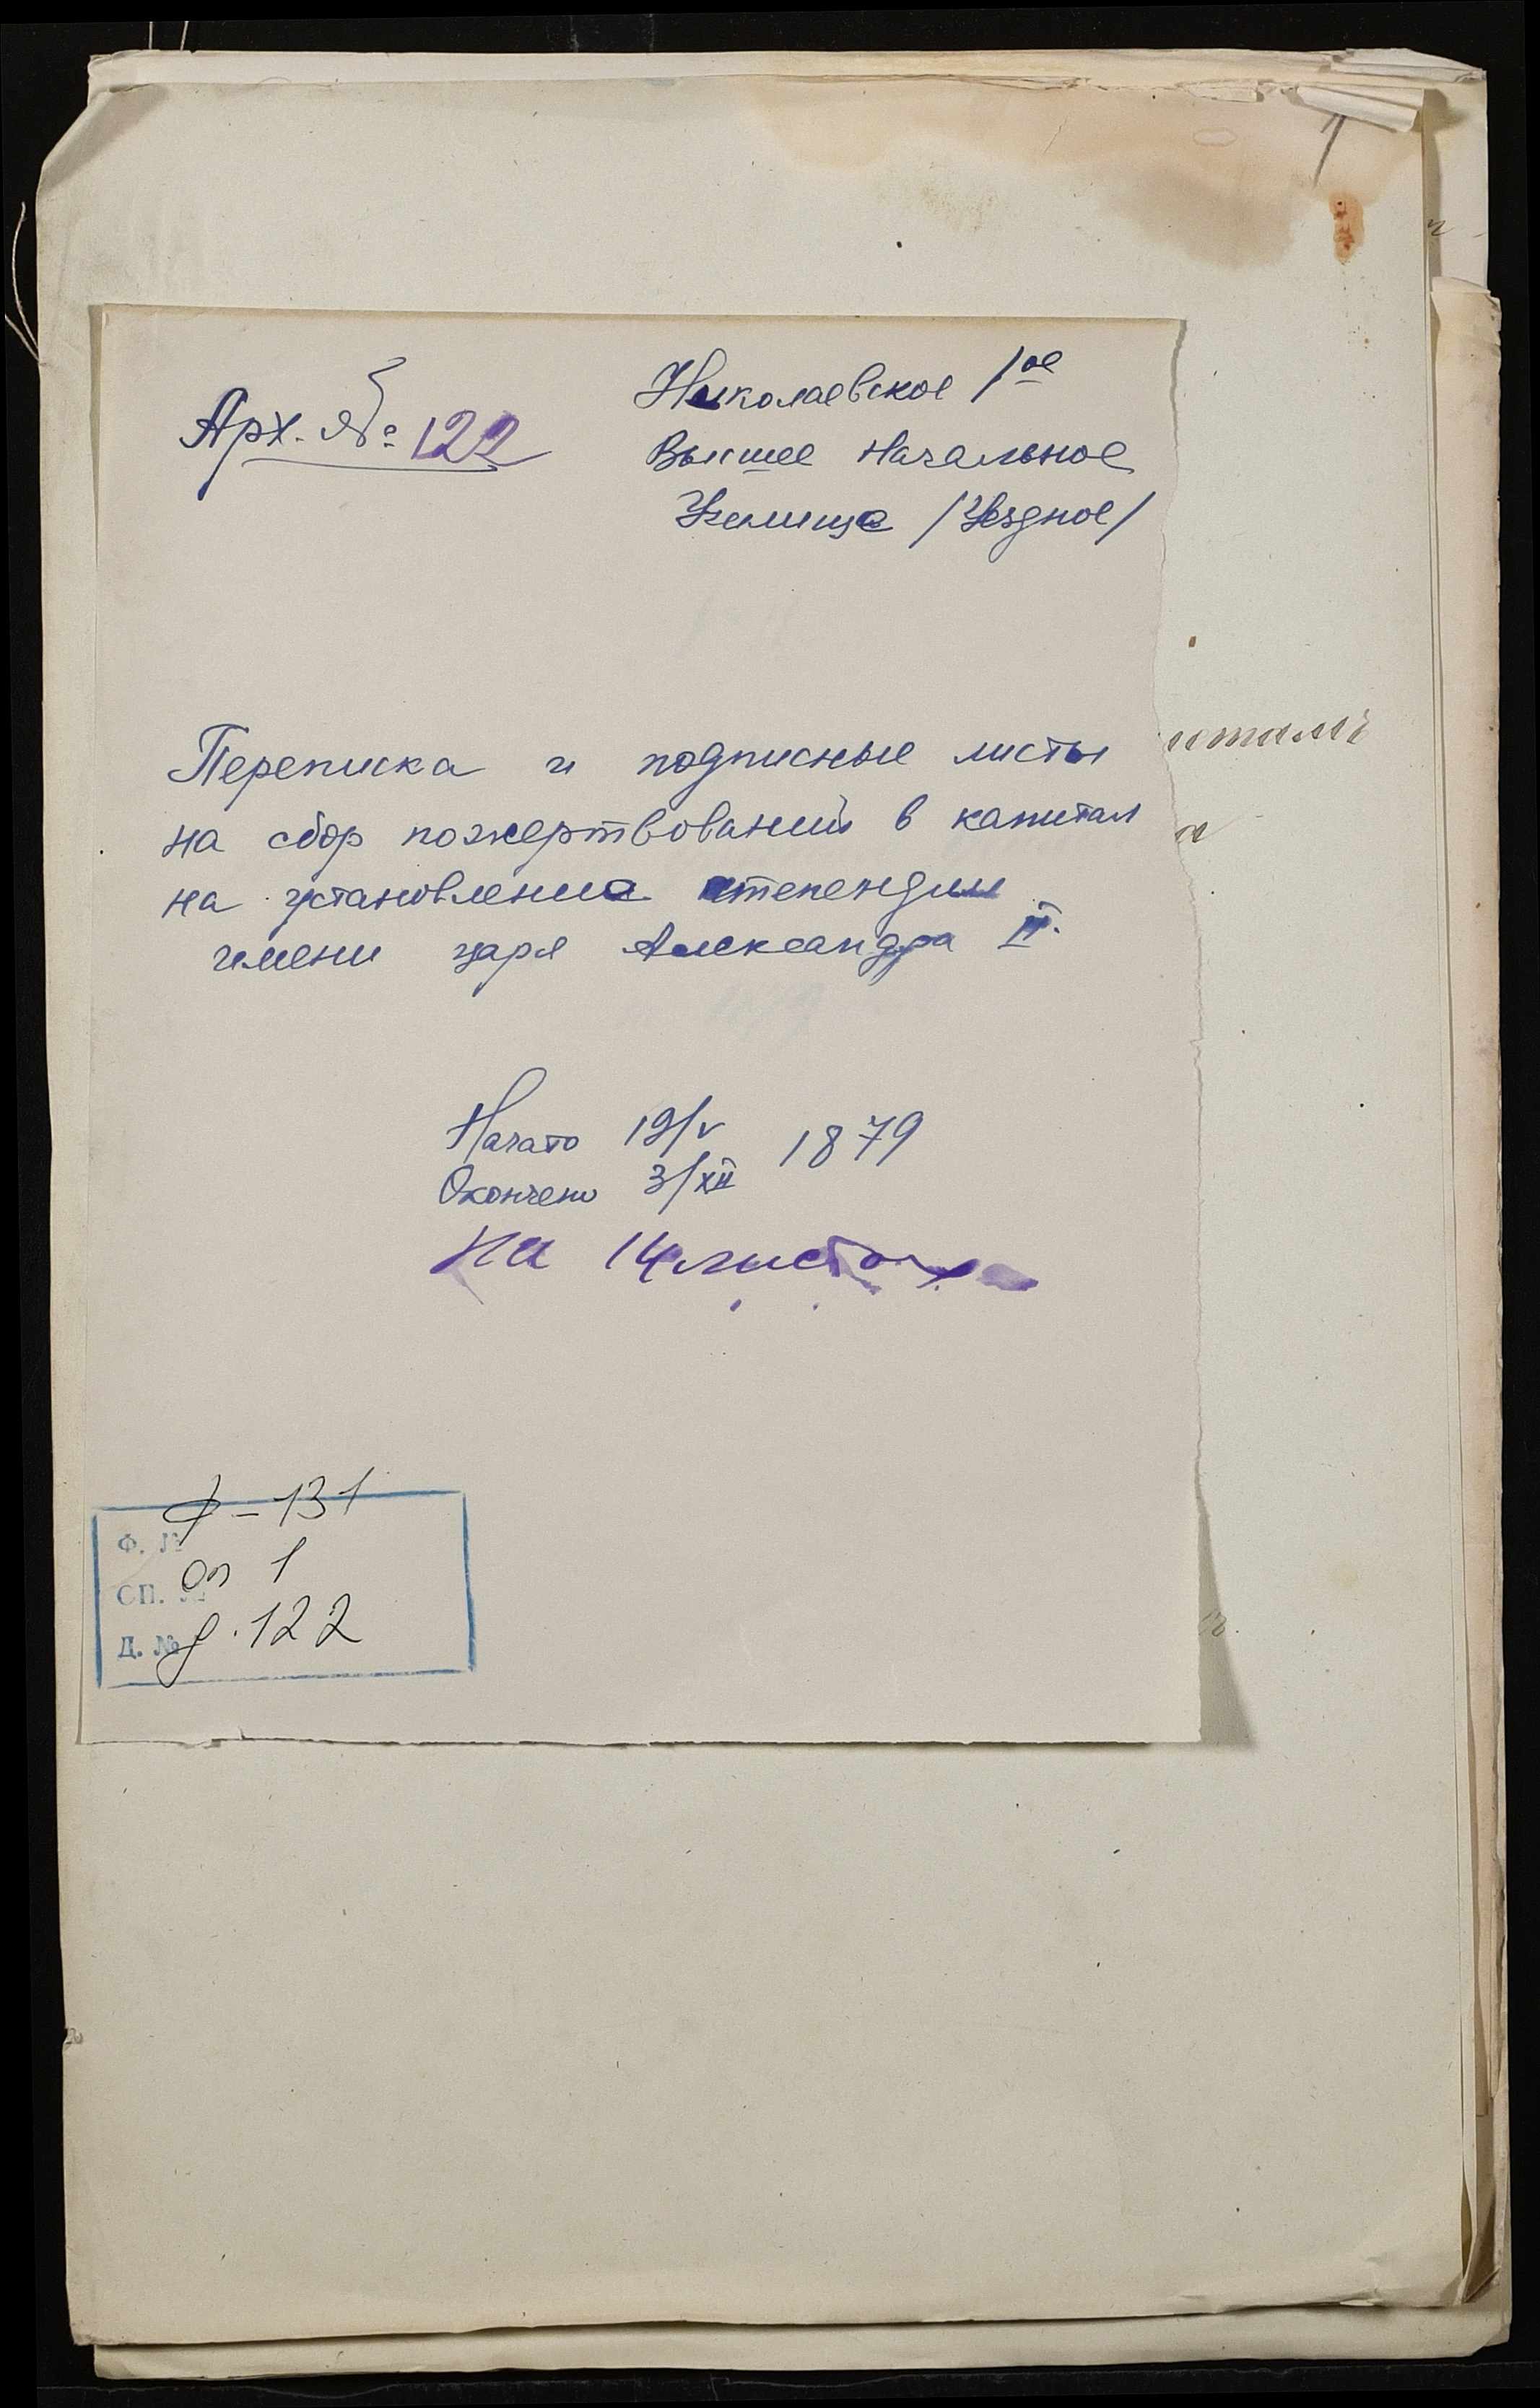 1
Арх. № 122
Николаевское 1ое
Высшее Начальное
Училище /Уездное/
Переписка и подписные листы
на сбор пожертвований в капитал
на установление степендии
имени царя Александра II.
Начато 19/V 1879
Окончено 3/XII
на 14 листах
Ф. № ф-131
ОП. № оп 1
Д. № д. 122